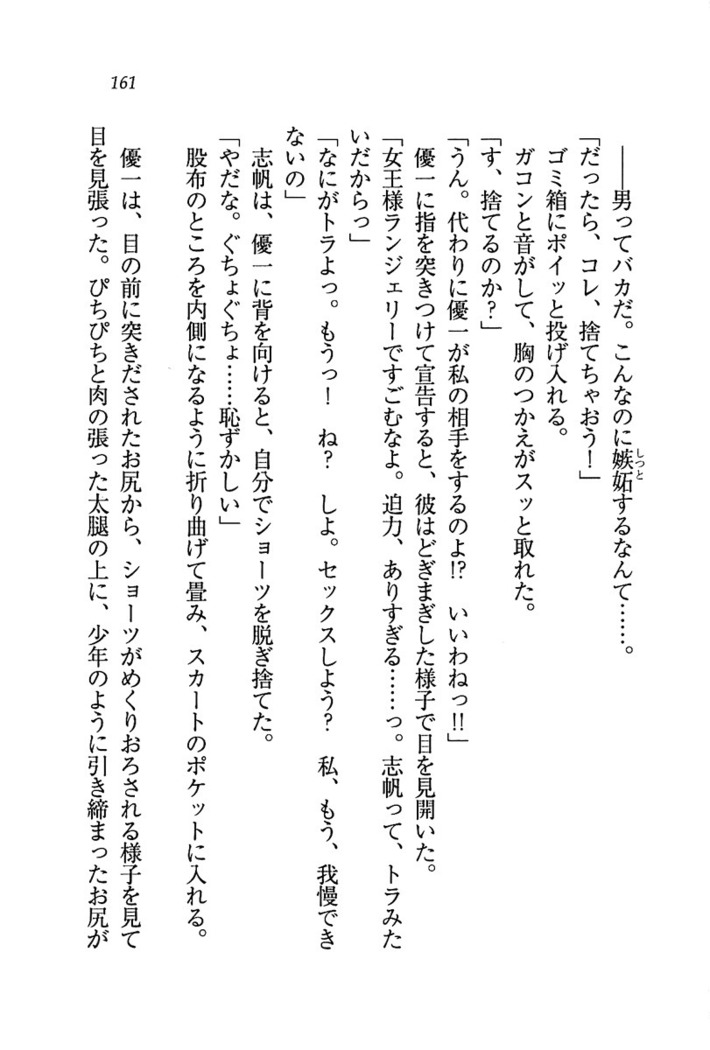 161
――男ってバカだ。こんなのに嫉妬するなんて……。
しっと
「だったら、コレ、捨てちゃおう！」
ゴミ箱にポイッと投げ入れる。
ガコンと音がして、胸のつかえがスッと取れた。
「す、捨てるのか？」
「うん。代わりに優一が私の相手をするのよ!?　いいわねっ!!」
優一に指を突きつけて宣告すると、彼はどぎまぎした様子で目を見開いた。
「女王様ランジェリーですごむなよ。迫力、ありすぎる……っ。志帆って、トラみた
いだからっ」
「なにがトラよっ。もうっ！　ね？　しよ。セックスしよう？　私、もう、我慢でき
ないの」
志帆は、優一に背を向けると、自分でショーツを脱ぎ捨てた。
「やだな。ぐちょぐちょ……恥ずかしい」
股布のところを内側になるように折り曲げて畳み、スカートのポケットに入れる。
優一は、目の前に突きだされたお尻から、ショーツがめくりおろされる様子を見て
目を見張った。ぴちぴちと肉の張った太腿の上に、少年のように引き締まったお尻が